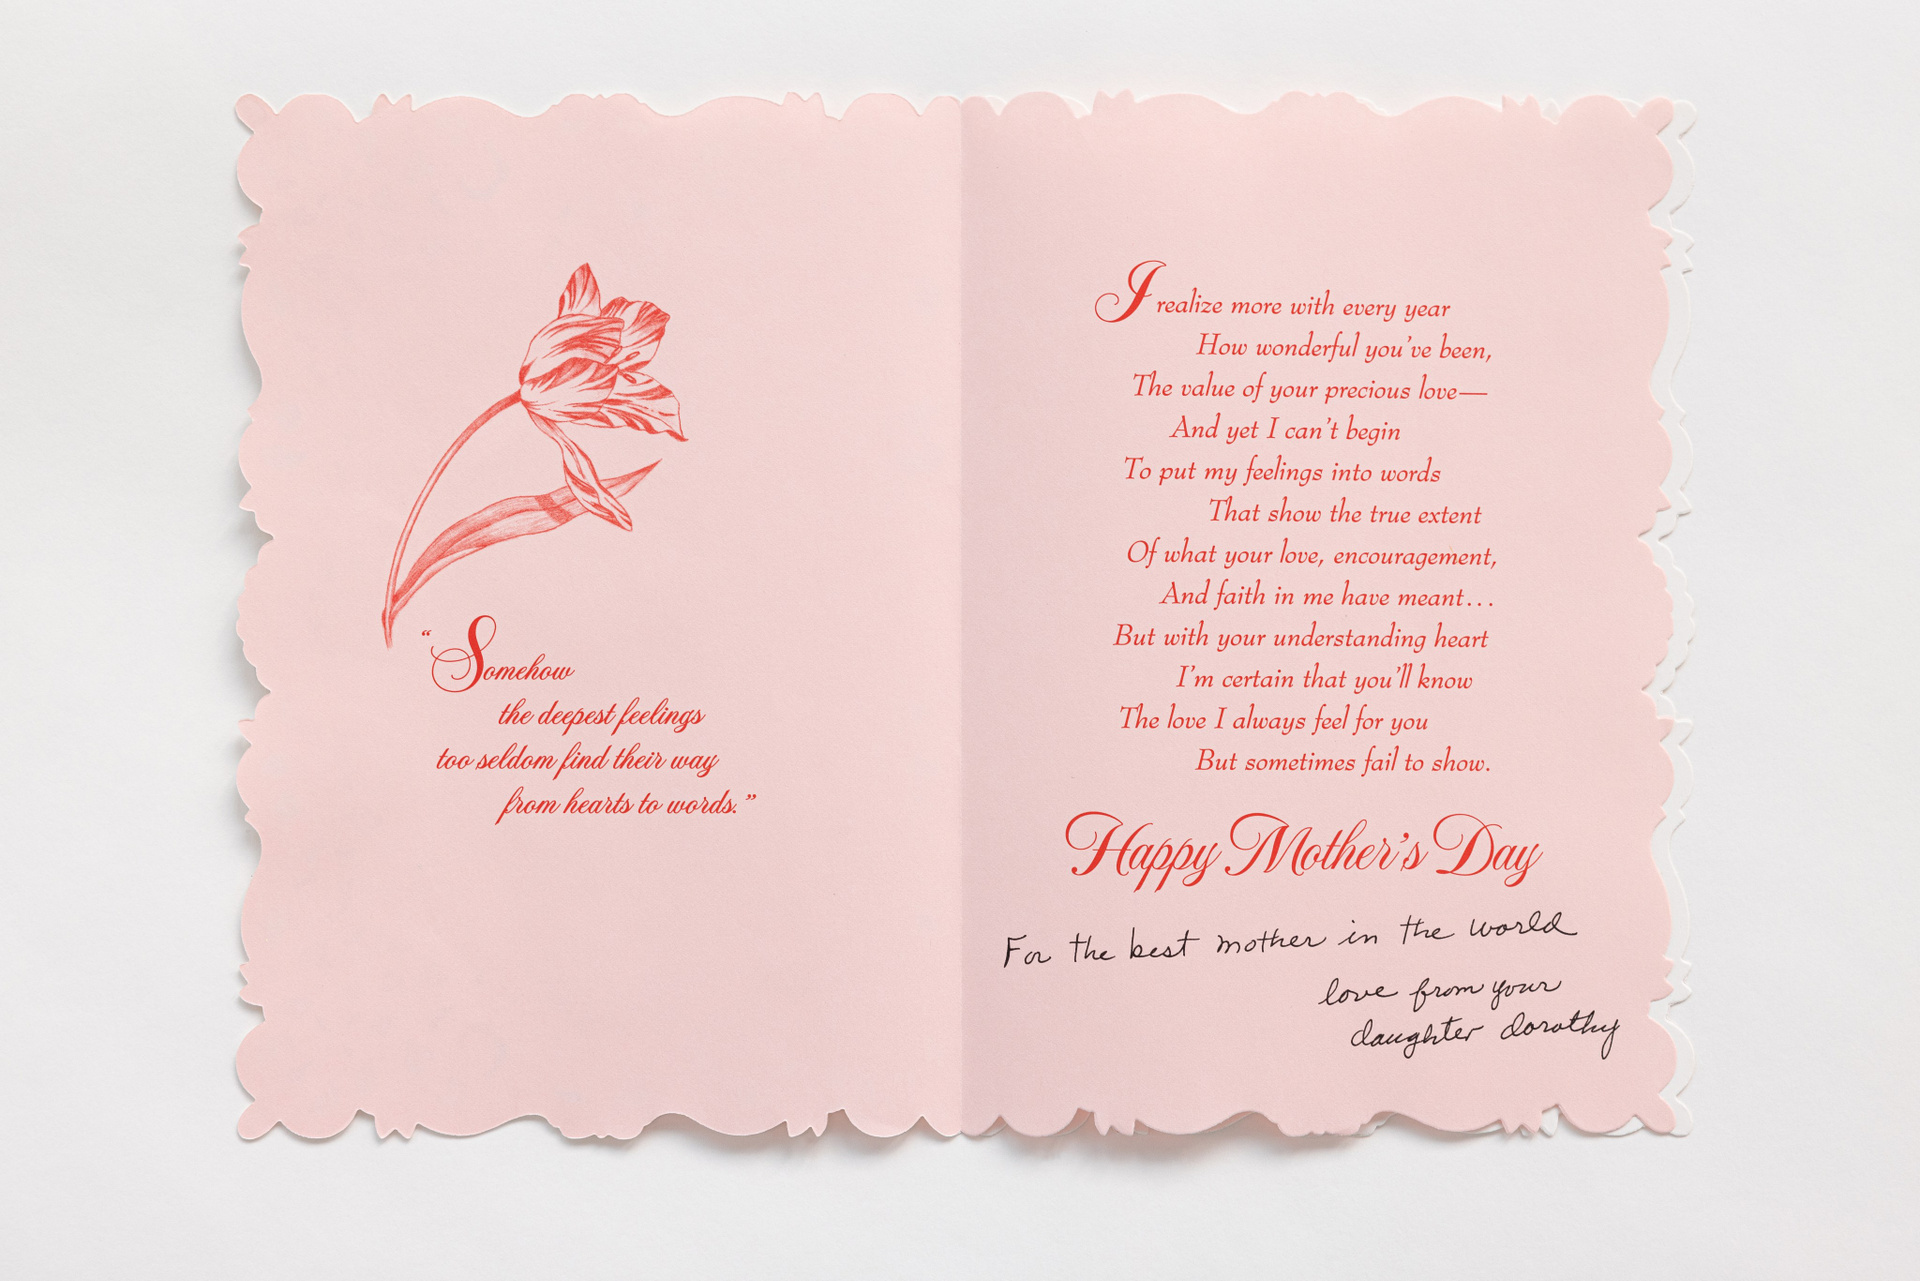 “Somehow
the deepest feelings
too seldom find their way
from hearts to words.”
I realize more with every year
How wonderful you’ve been,
The value of your precious love—
And yet I can’t begin
To put my feelings into words
That show the true extent
Of what your love, encouragement,
And faith in me have meant...
But with your understanding heart
I’m certain that you’ll know
The love I always feel for you
But sometimes fail to show.
Happy Mother’s Day
For the best mother in the world
love from your
daughter dorothy